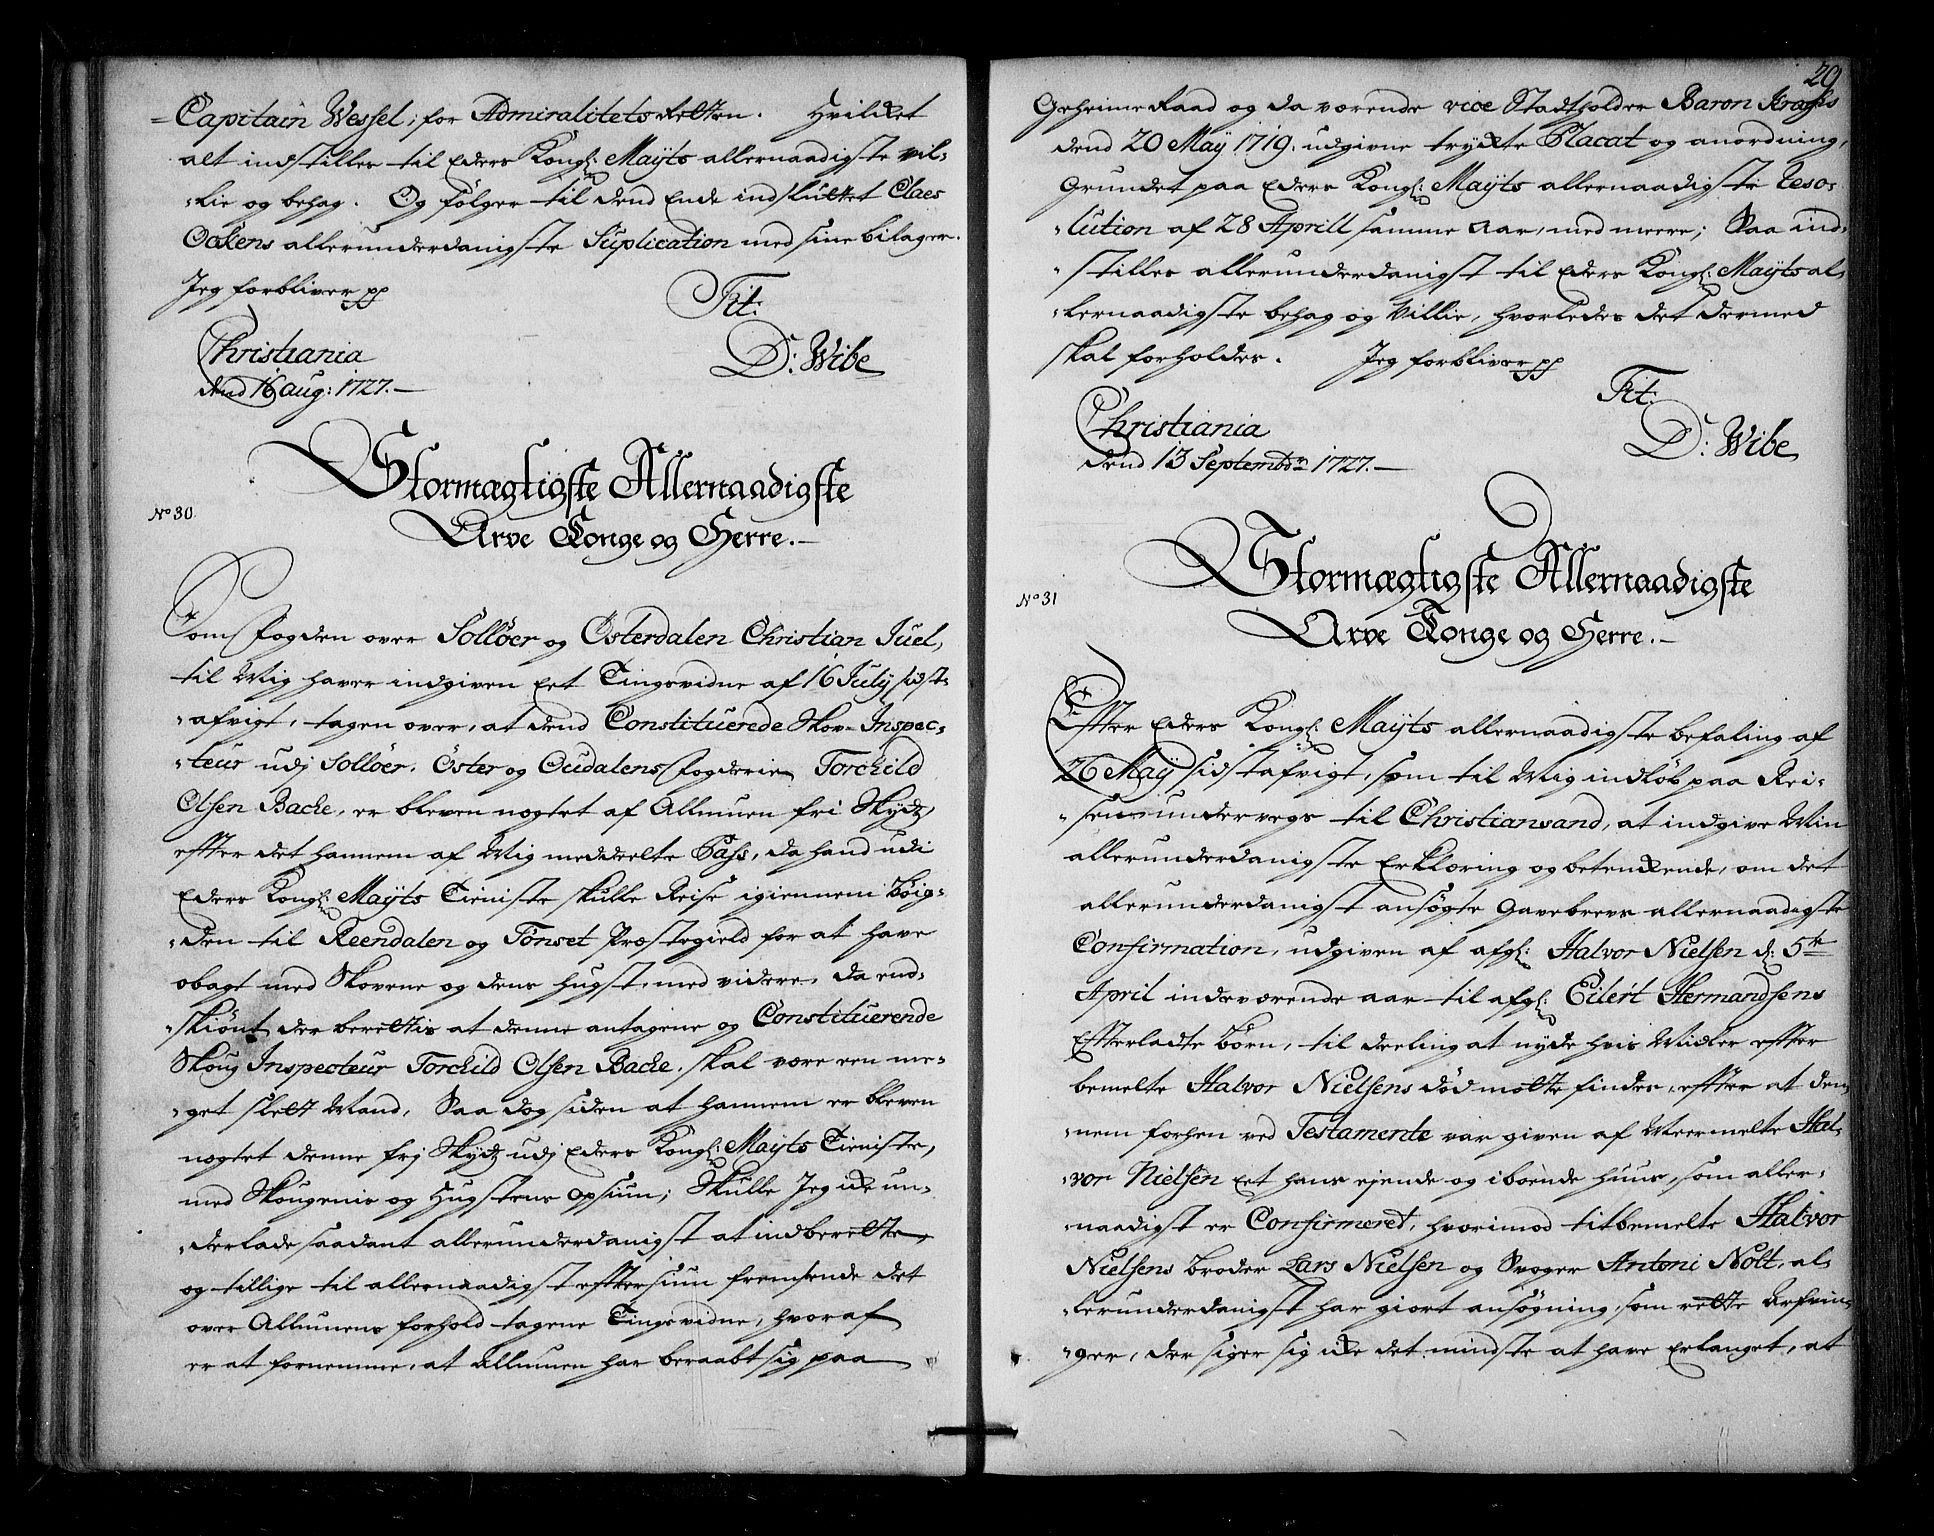 Capitain Wessel, for Admiralitets Retten. Hvilcket
alt indstilles til Eders Kongl: Mayts allernaadigste vil-
-lie og behag. Og følger til dend Ende indsluttet Claes
Ockens allerunderdanigste Suplication med sine bilager.
Jeg forbliver pp
Tit:
Christiania
D: Wibe
dend 16 aug: 1727.
Stormægtigste Allernaadigste
No 30.
Arve Konge og Herre.
Som fogden over Solløer og Østerdalen Christian Juel,
til Mig haver indgiven eet Tingsvidne af 16 July sidst-
-afvigt, tagen over, at dend Constituerede Skov-Inspec-
-teur udj Solløer, Øster og Oudalens fogderie Torchild
Olsen Bache, er bleven nægtet af Allmuen fri Skydz
effter det hannem af Mig meddeelte Pass, da hand udi
Eders Kongl: Mayts Tieniste skulle Reise igiennem Bøig-
-den til Reendalen og Tønset Præstegield for at have
obagt med Skovene og dens hugst, med videre, da end-
-skiønt der berettis at denne antagene og Constituerende
Skoug Inspecteur Torchild Olsen Bache, skal være een me-
-get slett Mand, Saa dog siden at hannem er bleven
nægtet denne frj Skydz udj Eders Kongl: Mayts Tieniste,
med Skougenis og Hugstens opsiun; Skulle Jeg icke un-
-derlade saadant allerunderdanigst at indberette,
og tillige til allernaadigst efftersiun fremsende det
over Allmuens forhold tagene Tingsvidne, hvoraf
er at fornemme, at Allmuen har beraabt sig paa
29
Geheime Raad og da værende vice Stadtholder Baron Kraghs
dend 20 May 1719. udgivne tryckte Placat og anordning,
Grundet paa Eders Kongl: Mayts allernaadigste Reso-
-lution af 28 Aprill samme aar, med meere; Saa ind-
-stilles allerunderdanigst til Eders Kongl: Mayts al-
-lernaadigste behag og Villie, hvorledes det dermed
skal forholdes. Jeg forbliver pp
Tit:
Christiania
D: Wibe
dend 13 Septembr 1727.
Stormægtigste Allernaadigste
No 31
Arve Konge og Herre.
Effter Eders Kongl: Mayts allernaadigste befaling af
26 May sidstafvigt, som til Mig indløb paa Rei-
-sen undervegs til Christiansand, at indgive Min
allerunderdanigste Erklæring og betenckende, om det
allerunderdanigst ansøgte Gavebrevs allernaadigste
Confirmation, udgiven af afgl: Halvor Nielsen d: 5te
April indeværende aar til afgl: Eilert Hermandsens
Effterladte Børn, til deeling at nyde hvis Midler effter
bemelte Halvor Nielsens død motte findes, effter at den-
-nem forhen ved Testamente var given af Meermelte Hal-
-vor Nielsen eet hans ejende og iboende huus, som aller-
-naadigst er Confirmeret, hvorimod titbemelte Halvor
Nielsens Broder Lars Nielsen og Svoger Antoni Nolt, al-
-lerunderdanigst har giort ansøgning, som rette Arfvin-
-ger, der siger sig icke det mindste at have Erlanget, at